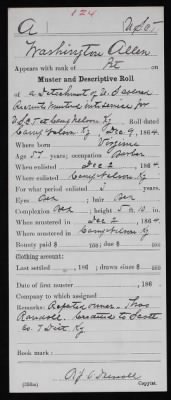 124
A U.S.C.T.
Washington Allen
Appears with rank of Pt on
Muster and Descriptive Roll
of a Detachment of U.S. Colored
Recruits Mustered into service for
U S C T at Camp Nelson Ky Roll dated
Camp Nelson Ky Dec 9, 1864.
Where born Virginia
Age 37 years; occupation
When enlisted Dec 2, 1864.
Where enlisted Camp Nelson Ky
For what period enlisted 3 years.
Eyes ; hair
Complexion ; height 5 ft. in.
When mustered in Dec 2, 1864.
Where mustered in Camp Nelson Ky
Bounty paid $ 100; due $ 100
Clothing account:
Last settled , 186 ; drawn since $ 100
Date of first muster , 186
Company to which assigned
Remarks: Reported owner. Thos
Credited to Scott
Co. 7 Dist Ky
Book mark:
Copyist.